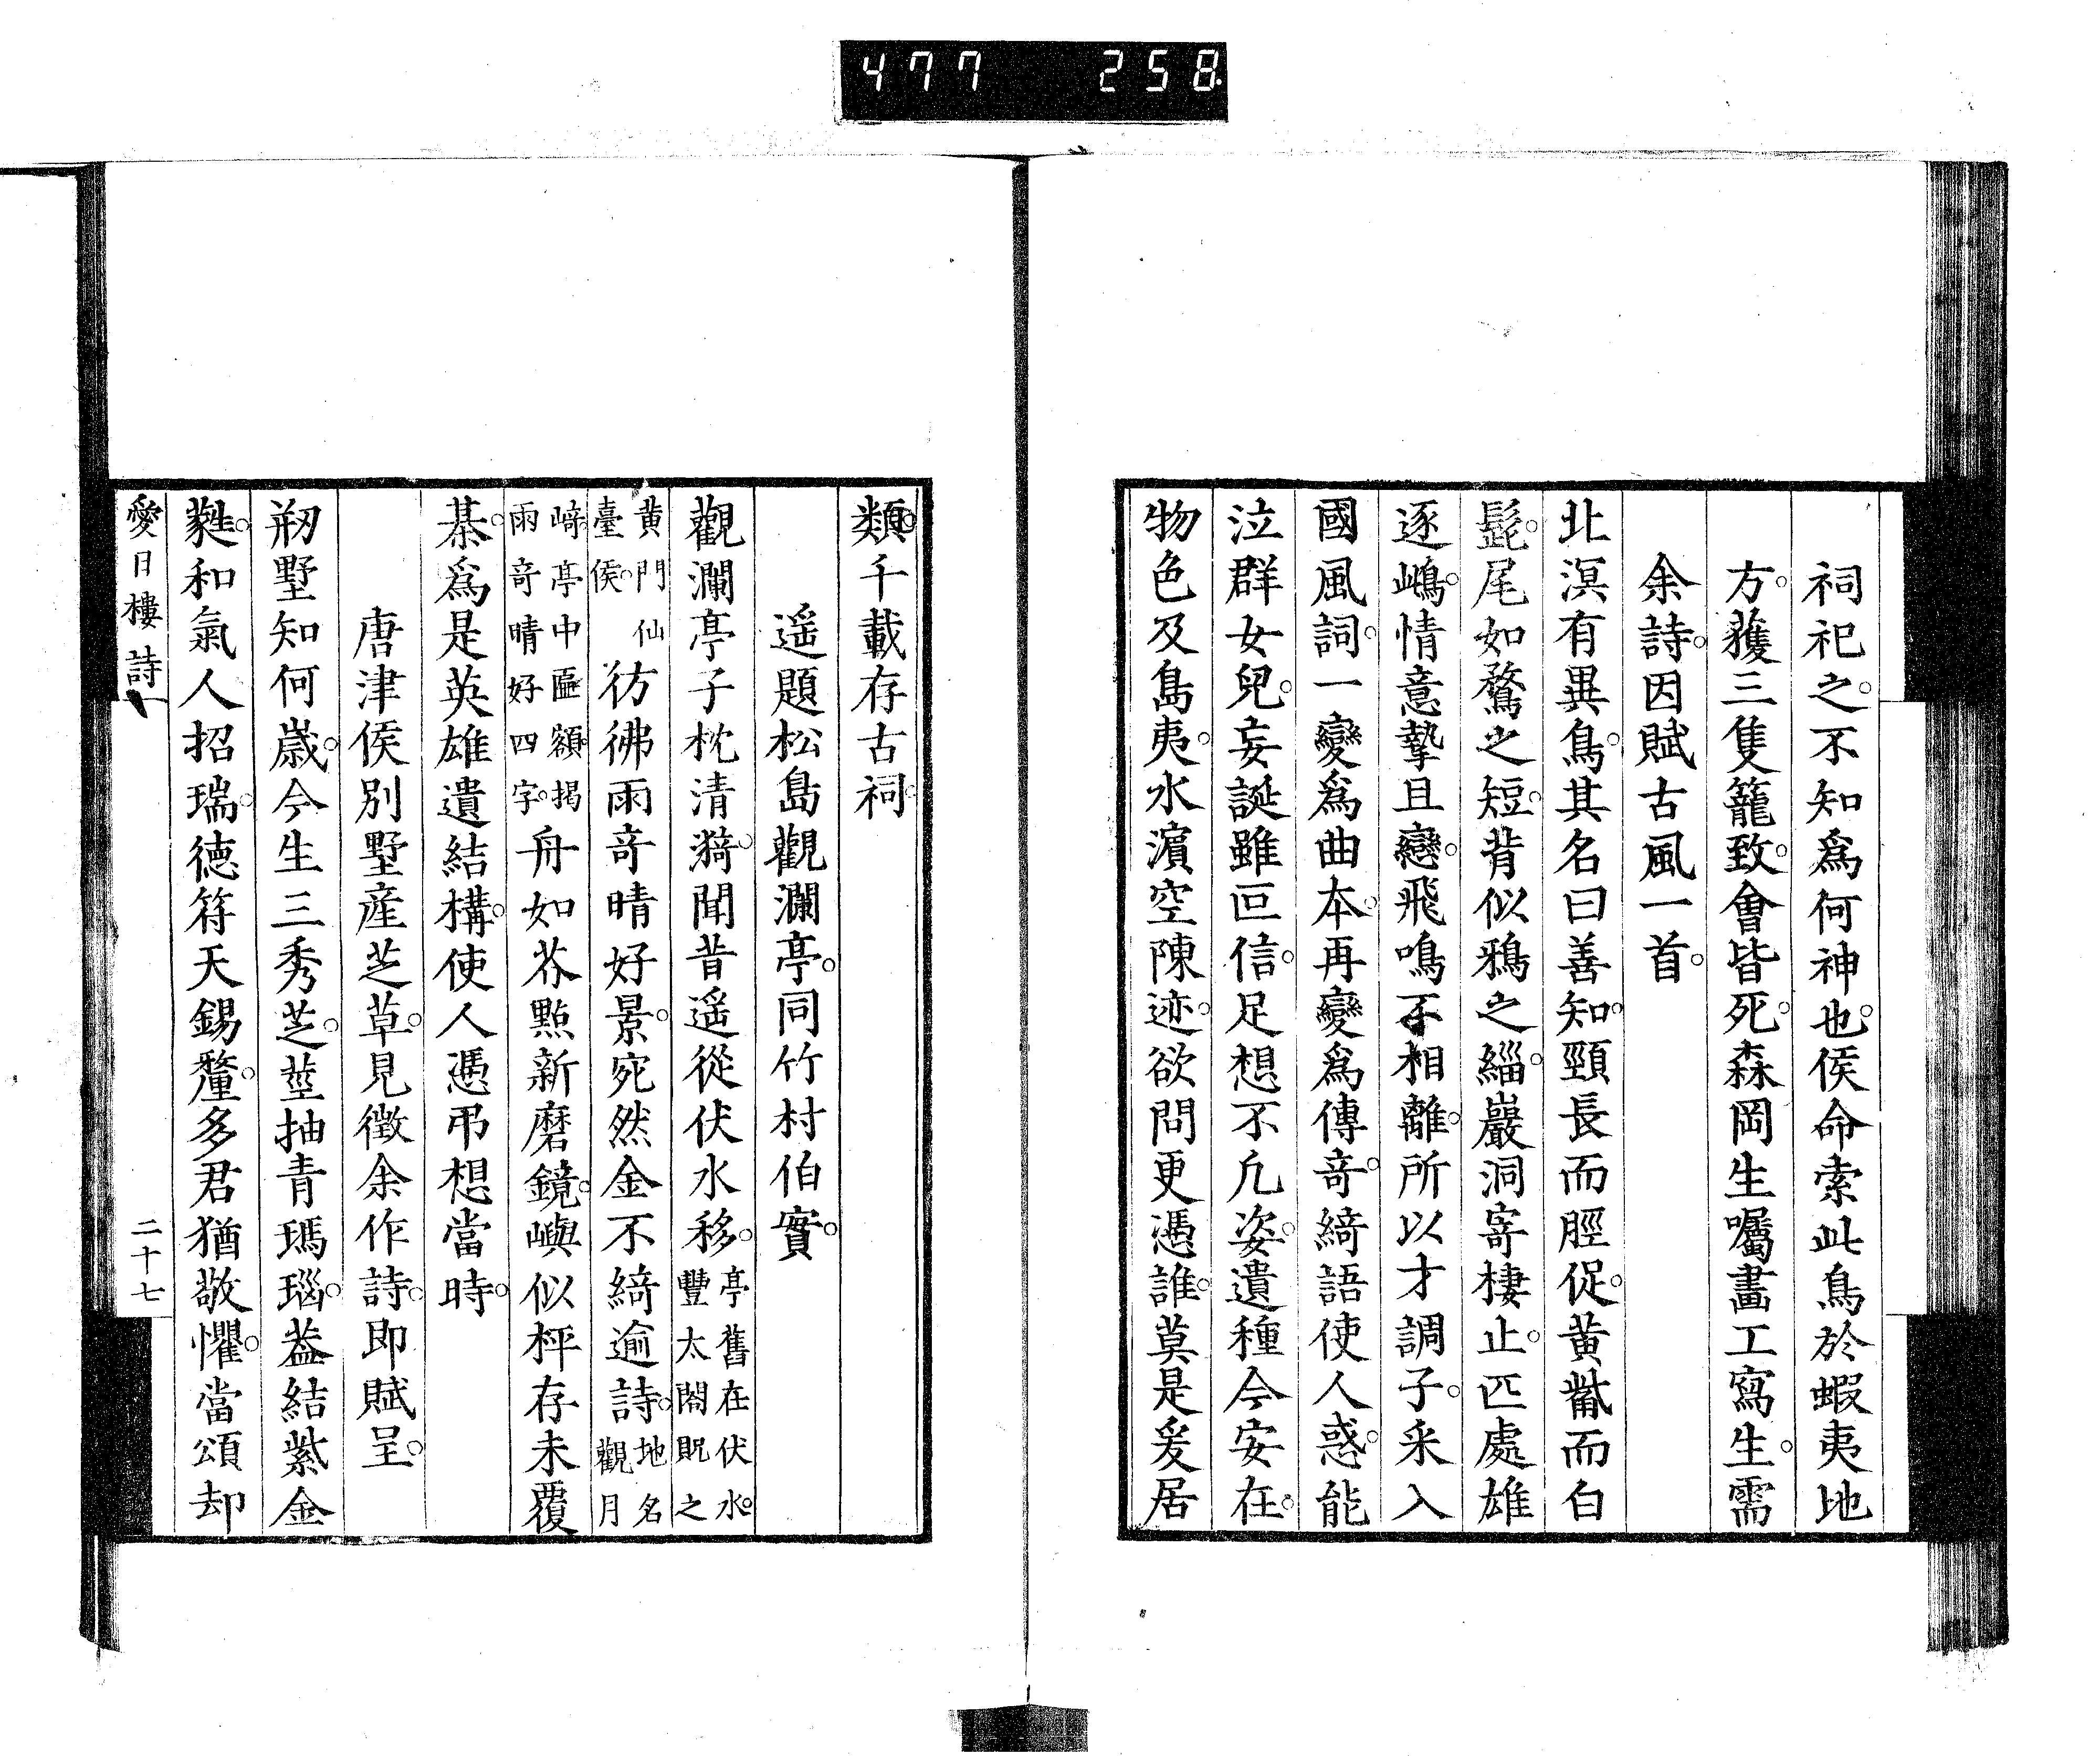 477 258
祠祀之。不知爲何神也。侯命索此鳥於蝦夷地
方。獲三隻籠致。會皆死。森岡生囑畫工寫生。需
余詩。因賦古風一首。
北溟有異鳥。其名曰善知。頸長而脛促。黄觜而白
髭。尾如鶩之短。背似鴉之緇。巖洞寄棲止。匹處雄
逐嶋。情意摯且戀。飛鳴不相離。所以才調子。采入
國風詞。一變爲曲本。再變爲傳竒。綺語使人惑。能
泣群女兒。妄誕雖叵信。足想不凡姿。遺種今安在。
物色及島夷。水濵空陳迹。欲問更憑誰。莫是爰居
類。千載存古祠。
遥題松島觀瀾亭。同竹村伯實。
觀瀾亭子枕清漪。聞昔遥從伏水移。亭舊在伏水。
豐太閤貺之
彷彿雨竒晴好景。宛然金不綺逾詩。地名
觀月
黄門仙
臺侯。
﨑。亭中匾額。揭
雨竒晴好四字。舟如芥點新磨鏡。嶼似枰存未覆
棊。爲是英雄遺結構。使人憑弔想當時。
唐津侯別墅産芝草。見徵余作詩。即賦呈。
剏墅知何歳。今生三秀芝。莖抽青瑪瑙。葢結紫金
蕤。和氣人招瑞。徳符天錫釐。多君猶敬懼。當頌却
愛日樓詩 二十七